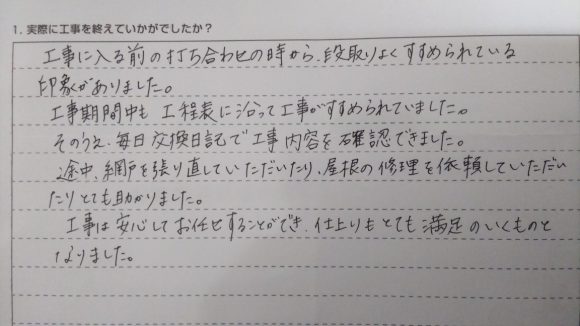 1. 実際に工事を終えていかがでしたか？
工事に入る前の打ち合わせの時から、段取りよくすすめられている
印象がありました。
工事期間中も工程表に沿って工事がすすめられていました。
そのうえ、毎日交換日記で工事内容を確認できました。
途中、網戸を張り直していただいたり、屋根の修理を依頼していただい
たりとても助かりました。
工事は安心してお任せすることができ、仕上りもとても満足のいくものと
なりました。